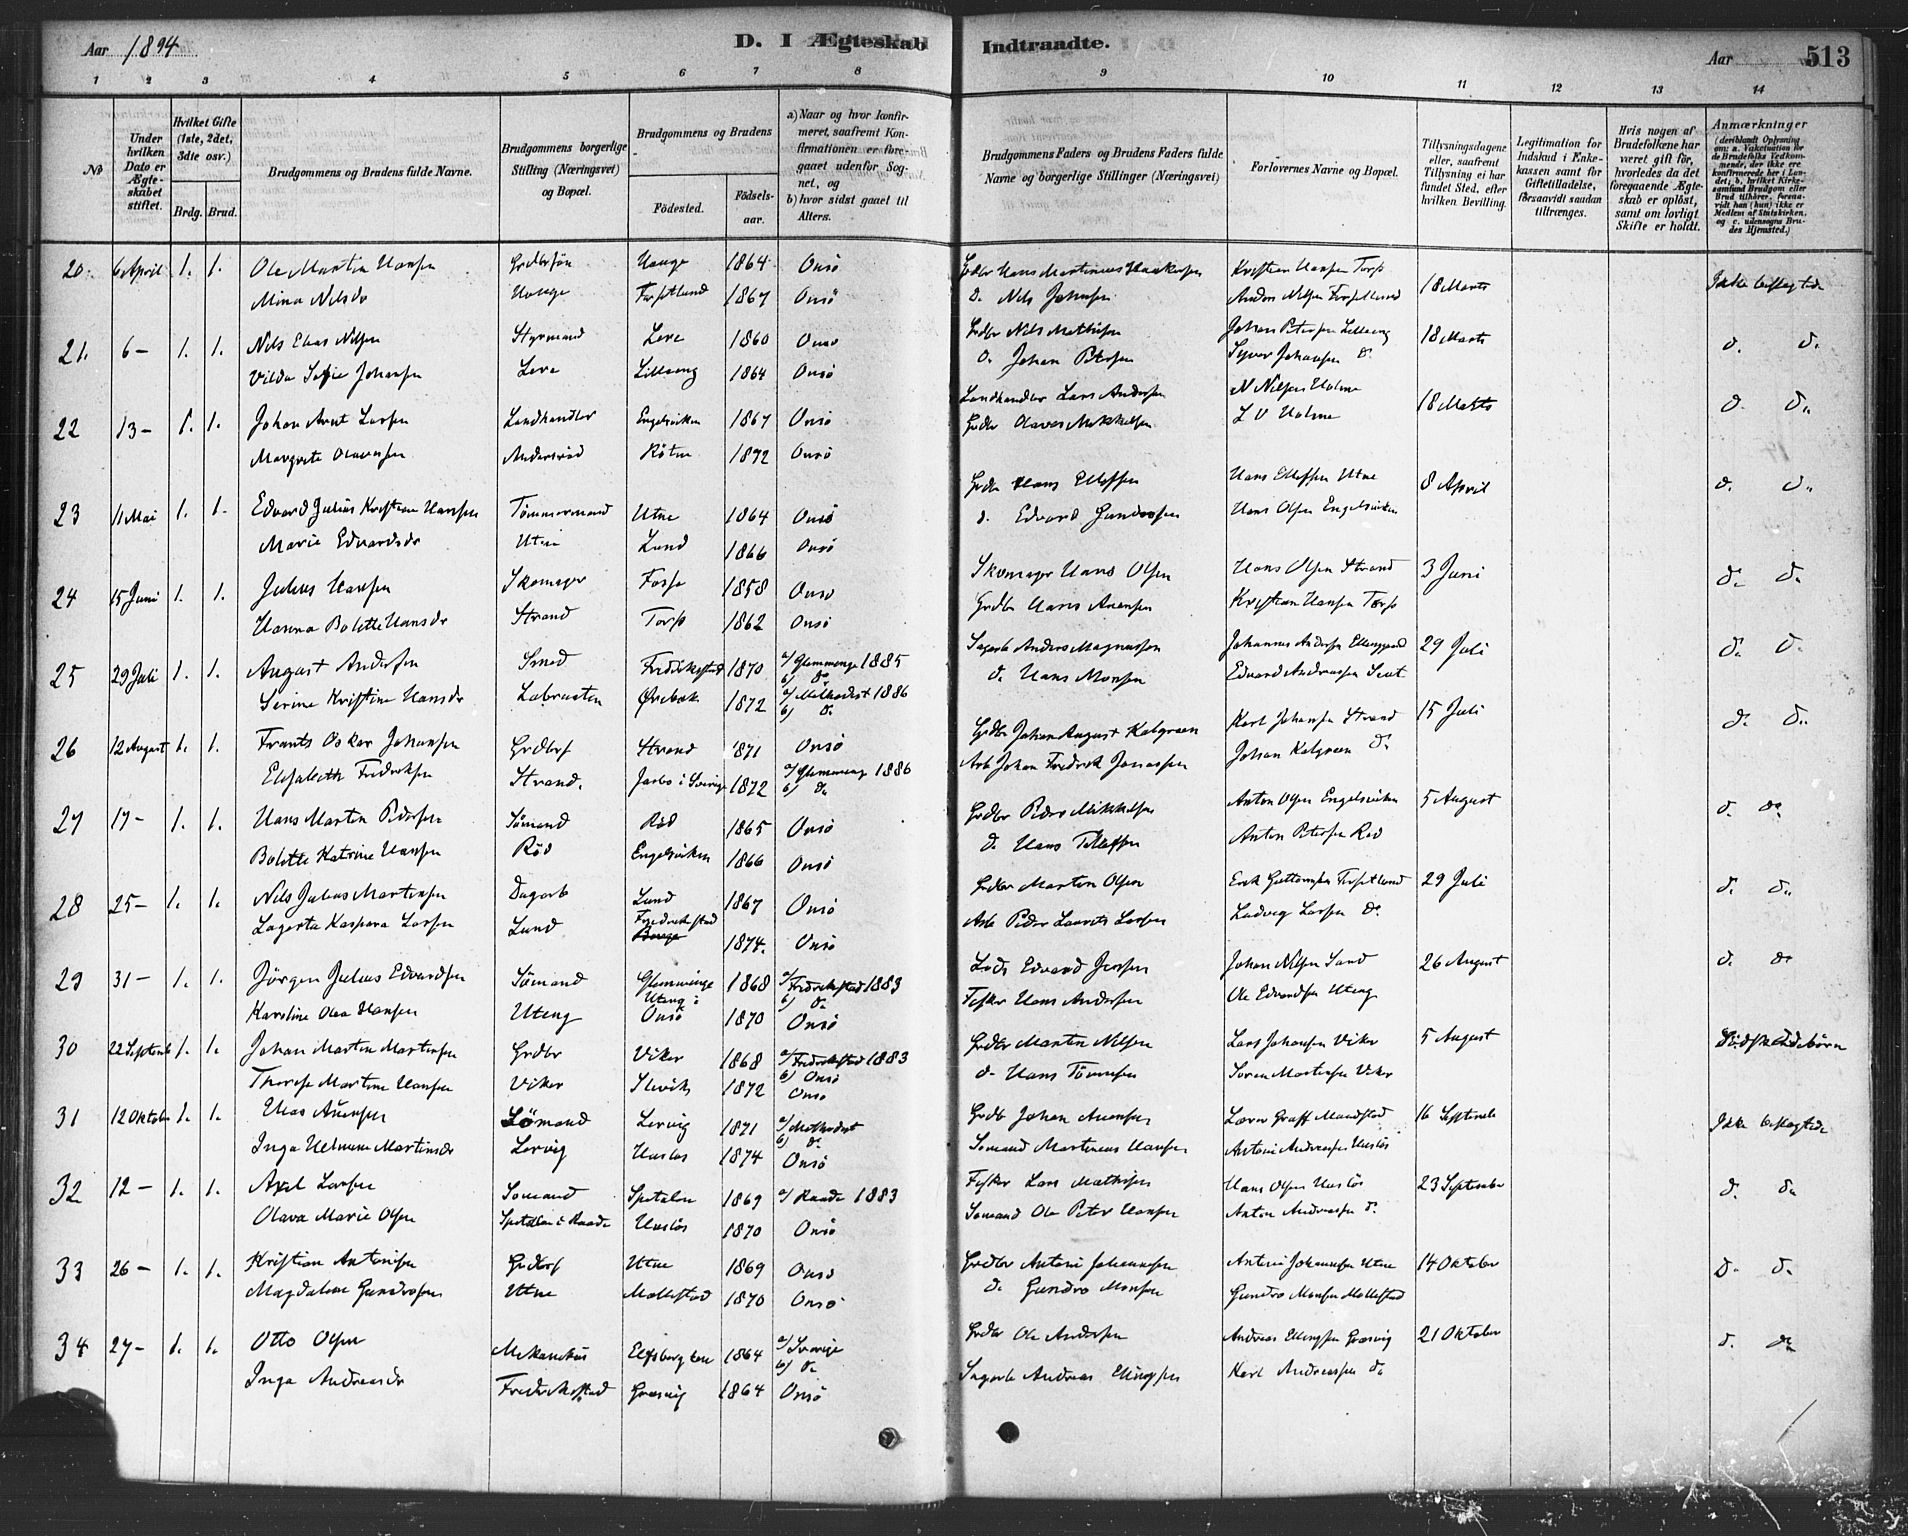 Aar 1894 D. I Ægteskab Indtraadte. Aar 513
1 2 3 4 5 6 7 8 9 10 11 12 13 14
No
Under hvilken Dato er Ægteskabet stiftet.
Hvilket Gifte (1ste, 2det, 3die osv.)
Brdg. Brud.
Brudgommens og Brudens fulde Navne.
Brudgommens borgerlige Stilling (Næringsvei) og Bopæl.
Brudgommens og Brudens
Fødested. Fødselsaar.
a) Naar og hvor konfirmeret, saafremt Konfirmationen er foregaaet udenfor Sognet, og
b) hvor sidst gaaet til Alters.
Brudgommens Faders og Brudens Faders fulde Navne og borgerlige Stillinger (Næringsvei)
Forlovernes Navne og Bopæl.
Tillysningsdagene eller, saafremt Tillysning ei har fundet Sted, efter hvilken Bevilling.
Legitimation for Indskud i Enkekassen samt for Giftetilladelse, forsaavidt saadan tiltrænges.
Hvis nogen af Brudefolkene har været gift før, hvorledes da det foregaaende Ægteskab er opløst, samt om lovligt Skifte er holdt.
Anmærkninger
20. 6 April 1. 1. Ole Martin Hansen Grdbrsøn Hauge 1864 Onsö Grdbr Hans Martinius Haakensen Kristian Hansen Torp 18 Marts Ikke beslægtede
Mina Nilsdr Hauge Torpetlund 1867 Onsö d. Nils Johnsen Anders Nilsen Torpetlund
21. 6 - 1. 1. Nils Elias Nilsen Styrmand Lere 1860 Onsö Grdbr Nils Mathisen Johan Petersen Lilleeng 18 Marts d. d.
Vilda Sofie Johansen Lere Lilleeng 1864 Onsö d. Johan Petersen Syver Johansen d.
22 13 - 1. 1. Johan Arnt Larsen Landhandler Engelsviken 1867 Onsö Landhandler Lars Andersen N Nilsen Holme 18 Marts d. d.
Margrete Olavesen Andersröd Rötne 1872 Onsö Grdbr Olaves Mikkelsen L V Holme
23 11 Mai 1. 1. Edvard Julius Kristian Hansen Tømmermand Utne 1864 Onsö Grdbr Hans Ellefsen Hans Ellefsen Utne 8 April d. d.
Marie Edvardsdr Utne Lund 1866 Onsö d. Edvard Gundersen Hans Olsen Engelsviken
24 15 Juni 1. 1. Julius Hansen Skomager Fosse 1858 Onsö Skomager Hans Olsen Hans Olsen Strand 3 Juni d. d.
Hanna Bolette Hansdr Strand Torp 1862 Onsö Grdbr Hans Arnesen Kristian Hansen Torp
25 29 Juli 1. 1. August Andersen Smed Fredrikstad 1870 a/ Glemminge 1885 b) d. Sagarb Anders Magnussen Johannes Andersen Ellinggaard 29 Juli d. d.
Serine Kristine Hansdr Labraaten Örebæk 1872 a/ Methodist 1886 b) d. d. Hans Monsen Edvard Andreassen Seut
26 12 August 1. 1. Frants Oskar Johansen Grdbrs Strand 1871 Onsö Grdbr Johan August Kalgraen Karl Johansen Strand 15 Juli d. d.
Elisabeth Fredriksen Strand. Jarbo i Sverige 1872 a/ Glemminge 1886 b) d. Arb Johan Fredrik Jonassen Johan Kalgraen d.
27 17 - 1. 1. Hans Martin Pedersen Sömand Röd 1865 Onsö Grdbr Peder Mikkelsen Anton Olsen Engelsviken 5 August d. do
Bolette Katrine Hansen Röd Engelsviken 1866 Onsö d. Hans Tollefsen Anton Petersen Röd
28 25 - 1. 1. Nils Julius Martinsen Dagarb Lund 1867 Onsö Grdbr Martin Olsen Erik Guttormsen Torpetlund 29 Juli d. d.
Lagerta Kaspara Larsen Lund Fredrikstad 1874. Onsö Arb Peder Laurits Larsen Ludvig Larsen do
29 31 - 1. 1. Jörgen Julius Edvardsen Sömand Glemminge 1868 a/ Fredrikstad 1883 b) d. Lods Edvard Jensen Johan Nilsen Sand 26 August d. do
Karoline Olea Hansen Uteng Uteng i Onsö 1870 Onsö Fisker Hans Andersen Ole Edvardsen Uteng
30 22 Septemb 1. 1. Johan Martin Martinsen Grdbr Viker 1868 a/ Fredrikstad 1883 b) Onsö Grdbr Martin Nilsen Lars Johansen Viker 5 August Södskendebörn
Therese Martine Hansen Viker Slevik 1872 Onsö d. Hans Tönnesen Sören Martinsen Viker
31 12 Oktober 1. 1. Elias Auensen Sömand Lervig 1871 a/ Methodist b) d. Grdb Johan Auensen Lærer Graff Mandstad 16 Septembr Ikke beslægtede
Inga Helmine Martinsdr Lervig Huslös 1874 Onsö Sömand Martinius Hansen Antoni Andreassen Huslös
32 12 - 1. 1. Axel Larsen Sömand Spetalen 1869 a/ Raade 1883 Fisker Lars Mathisen Hans Olsen Huslös 23 September d. do
Olava Marie Olsen Spetalen i Raade Huslös 1870 Onsö Sömand Ole Peter Hansen Anton Andreassen d.
33 26 - 1. 1. Kristian Antonisen Grdbrs Utne 1869 Onsö Grdbr Antoni Johannesen Antoni Johannesen Utne 14 Oktober D. d.
Magdalene Gundersen Utne Mallestad 1870 Onsö d. Gundro Monsen Gundro Monsen Mallestad
34 27 - 1. 1. Otto Olsen Mekanikus Elfsborg len 1864 a/ Sverige b) d. Grdbr Ole Andersen Andreas Ellingsen Græsvig 21 Oktober d. do
Inga Andreasdr Fredrikstad Græsvig 1864 Onsö Sagarb Andreas Ellingsen Karl Andreassen do